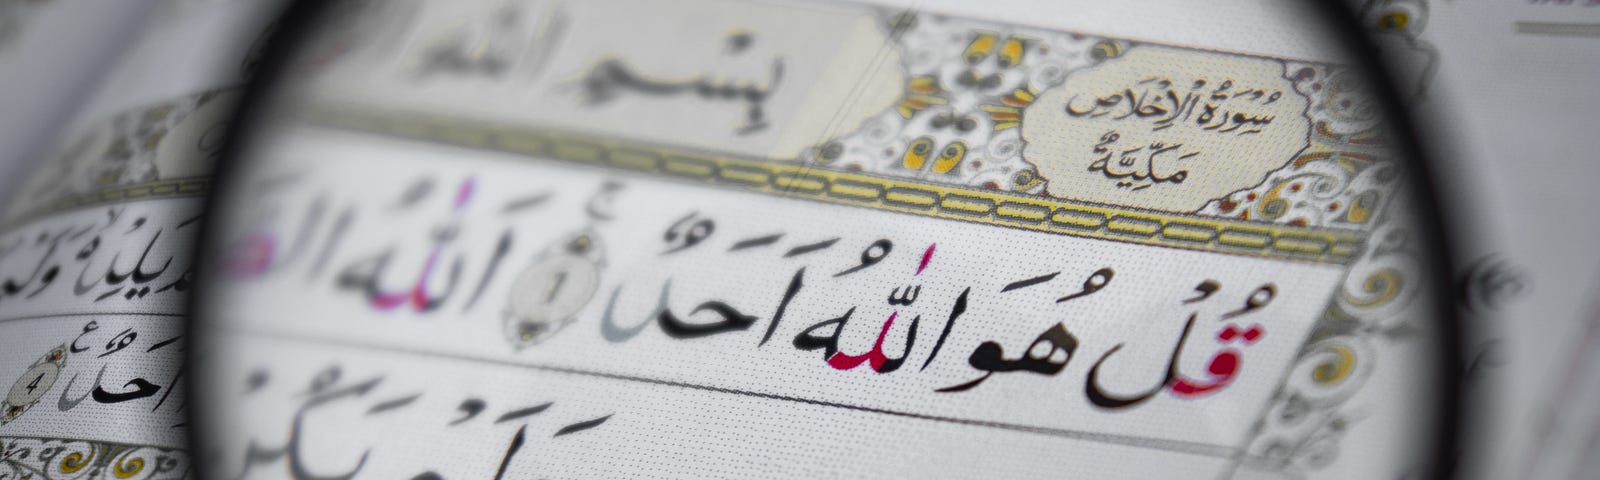 سُورَةُ الْإِخْلَاصِ
مَكِّيَّةٌ
بِسْمِ اللّٰهِ
قُلْ هُوَ اللّٰهُ اَحَدٌ ۚ 1 اَللّٰهُ
يَكُنْ
اَحَدٌ 4